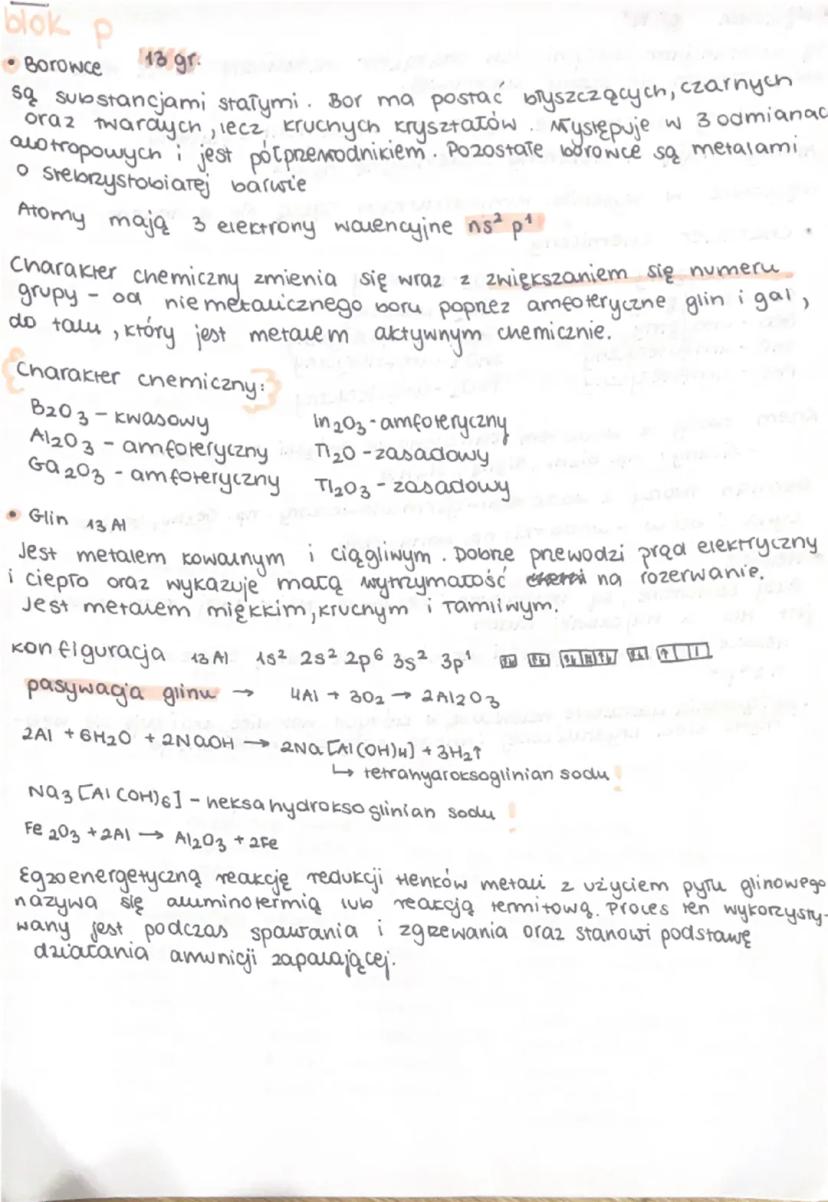 blok p
• Borowce 13 gr.
są substancjami stałymi. Bor ma postać błyszczących, czarnych
oraz twardych, lecz kruchych kryształów. Występuje w 3 odmianac
alotropowych i jest półprzewodnikiem. Pozostałe borowce są metalami
o srebrzystobiałej barwie
Atomy mają 3 elektrony walencyjne ns² p¹
Charakter chemiczny zmienia się wraz z zwiększaniem się numeru
grupy - od niemetalicznego boru poprzez amfoteryczne glin i gal,
do talu, który jest metalem aktywnym chemicznie.
Charakter chemiczny:
B2O3 - kwasowy In2O3 - amfoteryczny
Al2O3 - amfoteryczny Tl2O - zasadowy
Ga2O3 - amfoteryczny Tl2O3 - zasadowy
• Glin 13Al
Jest metalem kowalnym i ciągliwym. Dobrze przewodzi prąd elektryczny
i ciepło oraz wykazuje małą wytrzymałość na rozerwanie.
Jest metalem miękkim, kruchym i łamliwym.
konfiguracja 13Al 1s² 2s² 2p⁶ 3s² 3p¹
pasywacja glinu → 4Al + 3O2 → 2Al2O3
2Al + 6H2O + 2NaOH → 2Na[Al(OH)4] + 3H2↑
↳ tetrahydroksoglinian sodu !
Na3[Al(OH)6] - heksahydroksoglinian sodu !
Fe2O3 + 2Al → Al2O3 + 2Fe
Egzoenergetyczną reakcję redukcji tlenków metali z użyciem pyłu glinowego
nazywa się aluminotermią lub reakcją termitową. Proces ten wykorzysty-
wany jest podczas spawania i zgrzewania oraz stanowi podstawę
działania amunicji zapalającej.